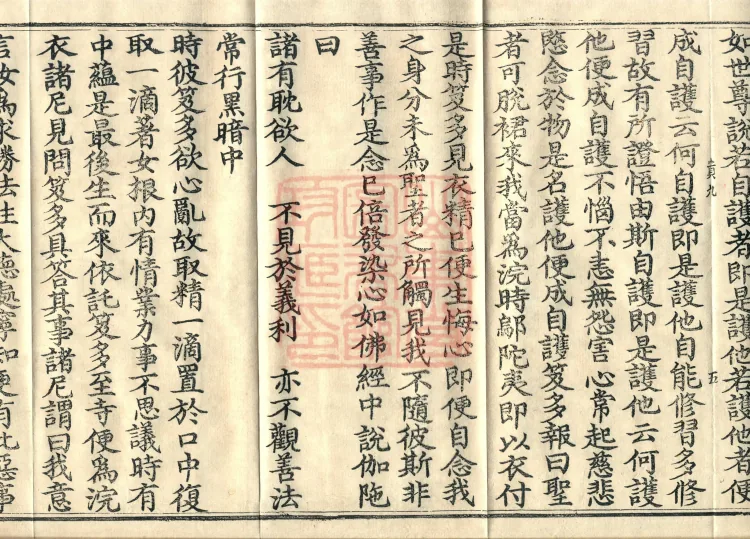 如世尊說若自護者即是護他若護他者便
九 五
成自護云何自護即是護他自能修習多修
習故有所證悟由斯自護即是護他云何護
他便成自護不惱不恚無怨害心常起慈悲
愍念於物是名護他便成自護笈多報曰聖
者可脫裙來我當為浣時鄔陀夷即以衣付
是時笈多見衣精已便生悔心即便自念我
之身分未為聖者之所觸見我不隨彼斯非
善事作是念已倍發染心如佛經中說伽陁
曰
諸有躭欲人 不見於義利 亦不觀善法
常行黑暗中
時彼笈多欲心亂故取精一滴置於口中復
取一滴著女根內有情業力事不思議時有
中蘊是最後生而來依託笈多至寺便為浣
衣諸尼見問笈多具答其事諸尼謂曰我意
言汝為求勝法住大德處寧知便有此惡事